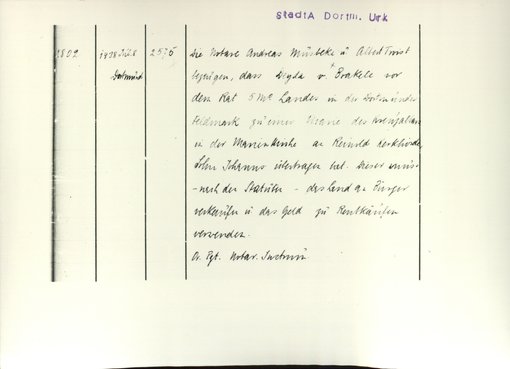 StadtA Dortm. Urk
1802 1438 Juli 8 2575 Die Notare Andreas Müsbeke u Albert
Dortmund bezeugen, dass Degda v. Brakele vor
dem Rat 5 Mg Landes in der Dortmunder
Feldmark zu einer Vicarie des
in der Marienkirche an Reinold
Sohn Johanns übertragen hat. Dieser muss
- nach den Statuten - das Land an Bürger
verkaufen u das Geld zu Rentkäufen
verwenden.
Or. Pgt. Notar. Instrum.